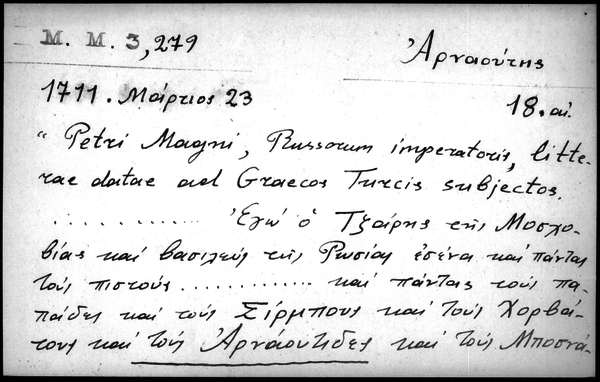 M. M. 3, 279
Ἀρναούτης
1711. Μάρτιος 23
18. αἰ.
" Petri Magni, Russorum imperatoris, litte-
rae datae ad Graecos Turcis subjectos.
.............. Ἐγώ ὁ Τζάρης τῆς Μοσχο-
βίας καί βασιλεύς τῆς Ρωσίας ἐσένα καί πάντας
τούς πιστούς ............. καί πάντας τούς πα-
πάδες καί τούς Σίρμπους καί τούς Χορβά-
τους καί τούς Ἀρνάουτιδες καί τούς Μποσνά-